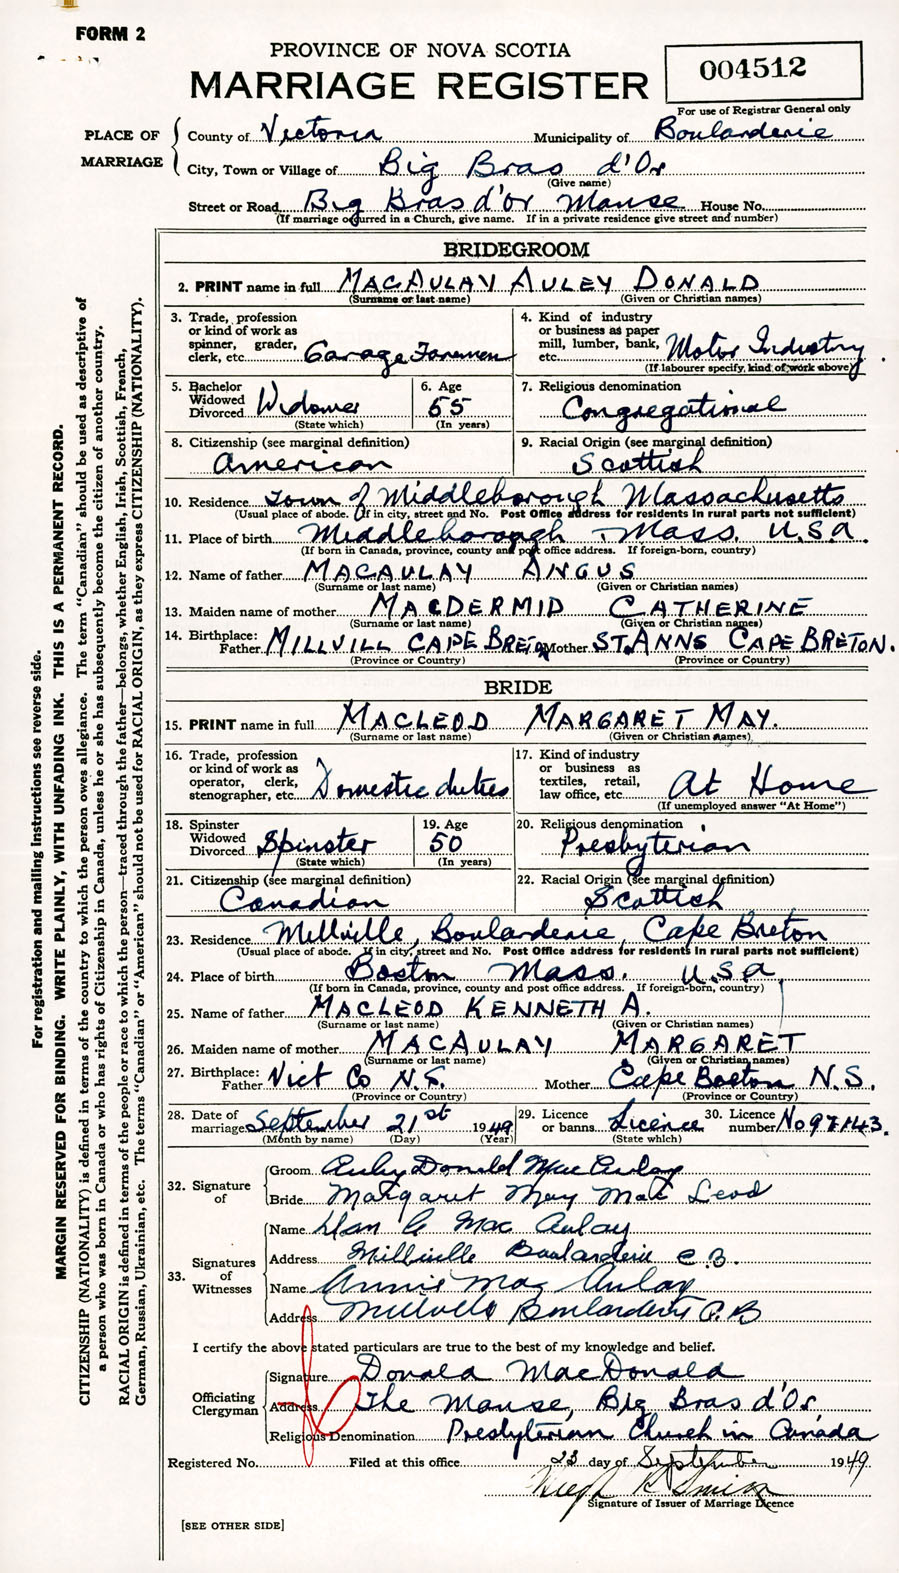 FORM 2
PROVINCE OF NOVA SCOTIA
MARRIAGE REGISTER
004512
For use of Registrar General only
PLACE OF MARRIAGE
County of Victoria Municipality of Boularderie
City, Town or Village of Big Bras d'Or
(Give name)
Street or Road Big Bras d'or Manse House No.
(If marriage occurred in a Church, give name. If in a private residence give street and number)
BRIDEGROOM
2. PRINT name in full MACAULAY AULEY DONALD
(Surname or last name) (Given or Christian names)
3. Trade, profession or kind of work as spinner, grader, clerk, etc. Garage Foremen
4. Kind of industry or business as paper mill, lumber, bank, etc. Motor Industry
(If labourer specify, kind of work above)
5. Bachelor Widowed Divorced Widower
(State which)
6. Age 55
(In years)
7. Religious denomination
Congregational
8. Citizenship (see marginal definition)
American
9. Racial Origin (see marginal definition)
Scottish
10. Residence Town of Middleborough Massachusetts
(Usual place of abode. If in city, street and No. Post Office address for residents in rural parts not sufficient)
11. Place of birth Middleborough Mass. U.S.A.
(If born in Canada, province, county and post office address. If foreign-born, country)
12. Name of father MACAULAY ANGUS
(Surname or last name) (Given or Christian names)
13. Maiden name of mother MACDERMID CATHERINE
(Surname or last name) (Given or Christian names)
14. Birthplace: Father MILLVILL CAPE BRETON Mother ST. ANNS CAPE BRETON.
(Province or Country) (Province or Country)
BRIDE
15. PRINT name in full MACLEOD MARGARET MAY.
(Surname or last name) (Given or Christian names)
16. Trade, profession or kind of work as operator, clerk, stenographer, etc. Domestic duties
17. Kind of industry or business as textiles, retail, law office, etc. At Home
(If unemployed answer "At Home")
18. Spinster Widowed Divorced Spinster
(State which)
19. Age 50
(In years)
20. Religious denomination
Presbyterian
21. Citizenship (see marginal definition)
Canadian
22. Racial Origin (see marginal definition)
Scottish
23. Residence Millville, Boularderie, Cape Breton
(Usual place of abode. If in city, street and No. Post Office address for residents in rural parts not sufficient)
24. Place of birth Boston Mass. U.S.A
(If born in Canada, province, county and post office address. If foreign-born, country)
25. Name of father MACLEOD KENNETH A.
(Surname or last name) (Given or Christian names)
26. Maiden name of mother MACAULAY MARGARET
(Surname or last name) (Given or Christian names)
27. Birthplace: Father Vict Co N.S. Mother Cape Boston N.S.
(Province or Country) (Province or Country)
28. Date of marriage September 21st 1949
(Month by name) (Day) (Year)
29. Licence or banns Licence
(State which)
30. Licence number No 97143.
32. Signature of
Groom Auley Donald MacAulay
Bride Margaret May MacLeod
33. Signatures of Witnesses
Name Dan A MacAulay
Address Millville Boularderie C.B.
Name Annie MacAulay
Address Millville Boularderie C.B
I certify the above stated particulars are true to the best of my knowledge and belief.
Officiating Clergyman
Signature Donald MacDonald
Address The Manse, Big Bras d'Or
Religious Denomination Presbyterian Church in Canada
Registered No. Filed at this office 23 day of September 1949
Hugh Smith
Signature of Issuer of Marriage Licence
[SEE OTHER SIDE]
For registration and mailing instructions see reverse side.
MARGIN RESERVED FOR BINDING. WRITE PLAINLY, WITH UNFADING INK. THIS IS A PERMANENT RECORD.
CITIZENSHIP (NATIONALITY) is defined in terms of the country to which the person owes allegiance. The term "Canadian" should be used as descriptive of
a person who was born in Canada or who has rights of Citizenship in Canada, unless he or she has subsequently become the citizen of another country.
RACIAL ORIGIN is defined in terms of the people or race to which the person—traced through the father—belongs, whether English, Irish, Scottish, French,
German, Russian, Ukrainian, etc. The terms "Canadian" or "American" should not be used for RACIAL ORIGIN, as they express CITIZENSHIP (NATIONALITY).